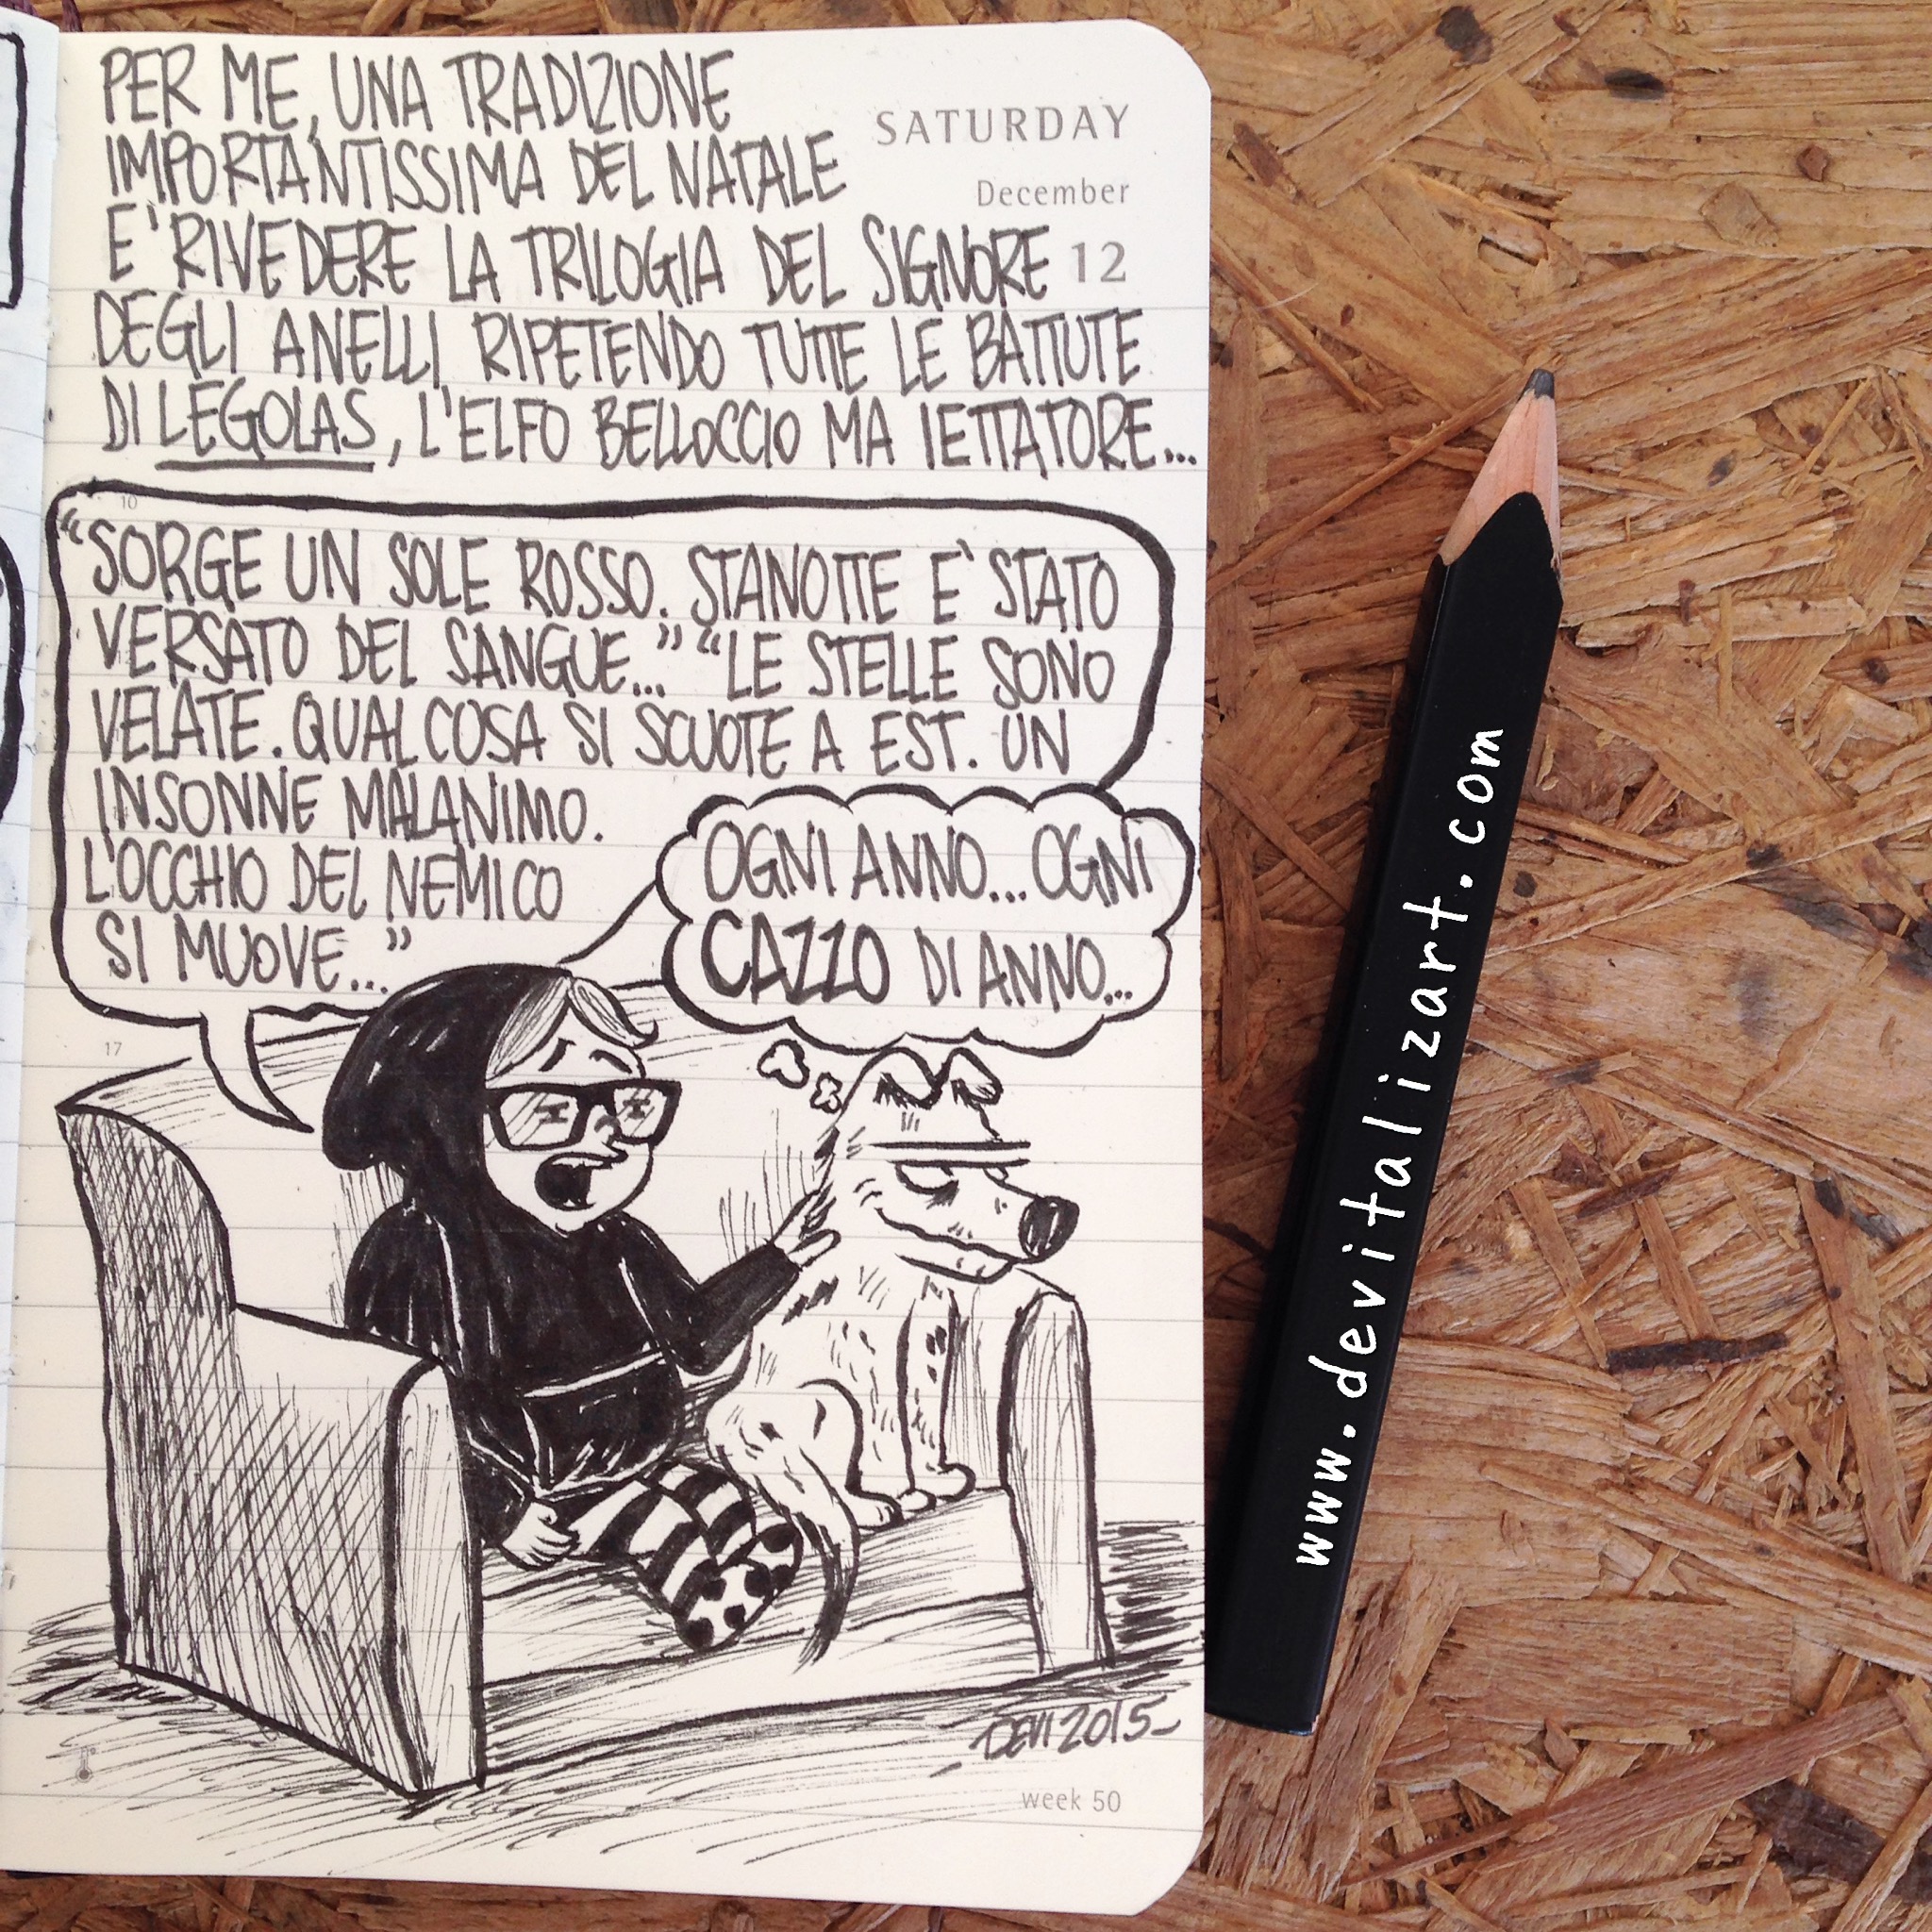 PER ME, UNA TRADIZIONE
IMPORTANTISSIMA DEL NATALE
E' RIVEDERE LA TRILOGIA DEL SIGNORE
DEGLI ANELLI RIPETENDO TUTTE LE BATTUTE
DI LEGOLAS, L'ELFO BELLOCCIO MA IETTATORE...
SATURDAY
December
12
10
"SORGE UN SOLE ROSSO. STANOTTE E' STATO
VERSATO DEL SANGUE..." "LE STELLE SONO
VELATE. QUALCOSA SI SCUOTE A EST. UN
INSONNE MALANIMO.
L'OCCHIO DEL NEMICO
SI MUOVE..."
OGNI ANNO... OGNI
CAZZO DI ANNO...
17
DEVI 2015
week 50
www.devitalizart.com